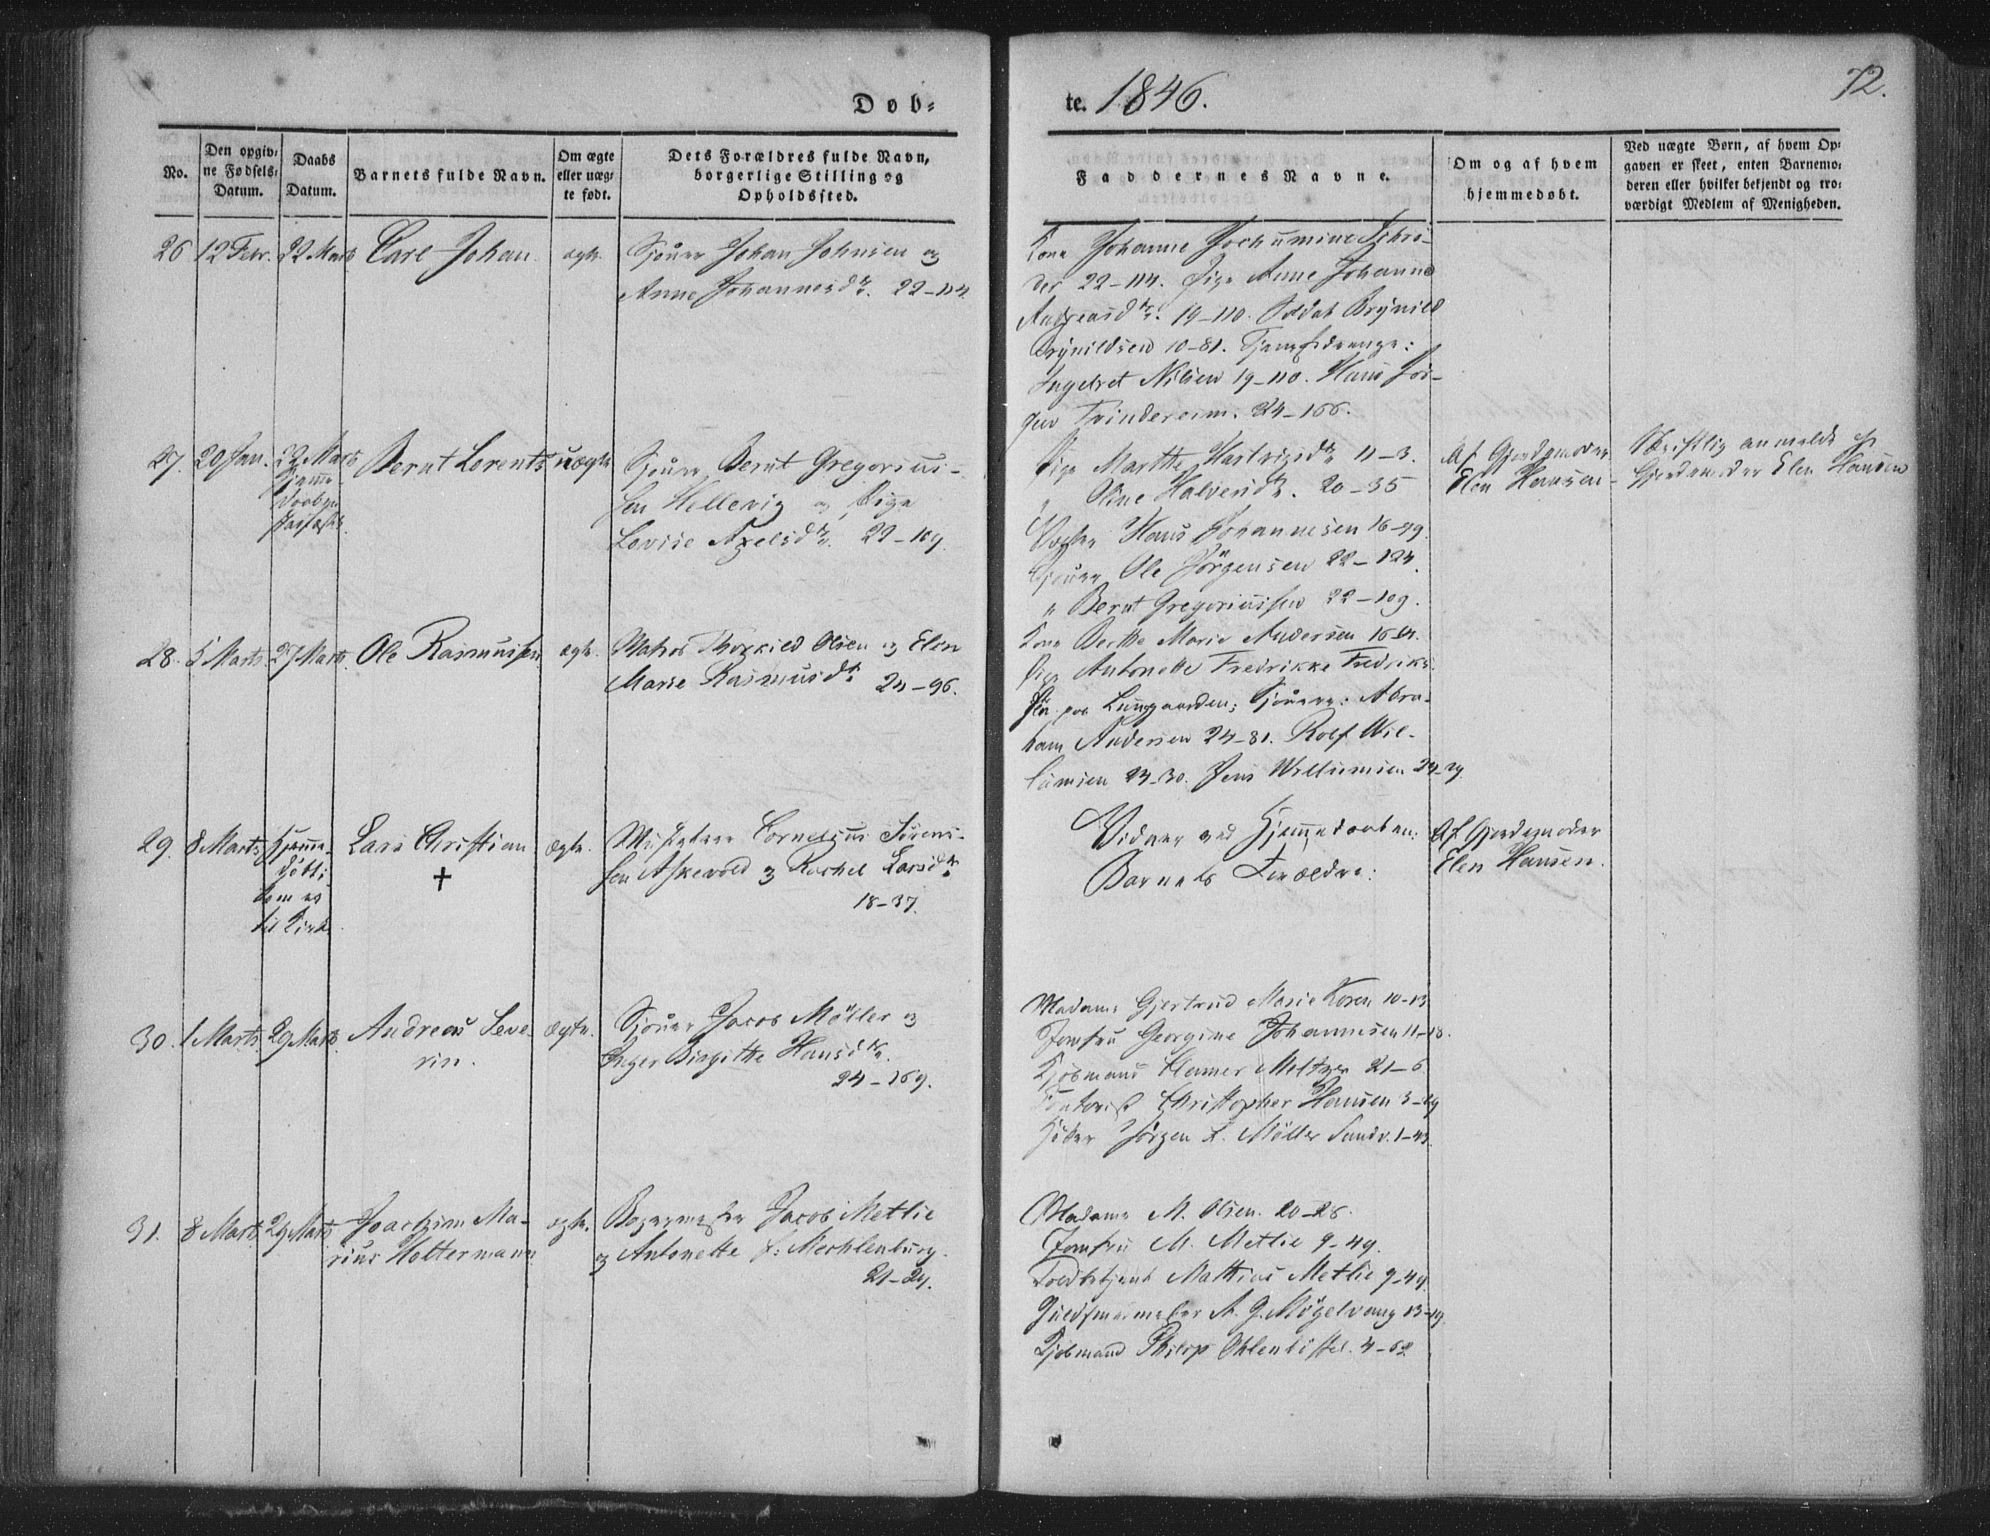 Døb=
te. 1846.
72.
No.
Den opgiv=
ne Fødsels=
Datum.
Daabs
Datum.
Barnets fulde Navn.
Om ægte
eller uæg=
te født.
Dets Forældres fulde Navn,
borgerlige Stilling og
Opholdssted.
Faddernes Navne.
Om og af hvem
hjemmedøbt.
Ved uægte Børn, af hvem Op=
gaven er skeet, enten Barnemo=
deren eller hvilket bekjendt og tro=
værdigt Medlem af Menigheden.
26 12 Febr. 22 Marts Carl Johan ægte. Sjouer Johan Johnsen og
Anne Johannesdtr. 22-114
Kone Johanne Jochumine Schrö-
der 22-114. Pige Anne Johanne
Andreasdtr. 19-110. Soldat Brynild
Brynildsen 10-81. Tjenestedrenge:
Ingebret Nilsen 19-110. Hans Jör-
gen Trindersen. 24-166.
27. 20 Jan. 22 Marts
Hjemme-
daaben
stadfæstet
Bernt Lorents uægte Sjouer Bernt Gregorius-
sen Hellevig og Pige
Lovise Axelsdtr. 22-109.
Pige Marthe Hartvigsdtr 11-3.
" Oline Halversdtr. 20-35
Vægter Hans Johannesen 16-49.
Sjouer Ole Jörgensen 22-124.
" Bernt Gregoriussen 22-109.
Af Gjordemoder
Elen Hansen
Skriftlig anmeldt af
Gjordemoder Elen Hansen
28. 5 Marts. 27 Marts. Ole Rasmussen ægte. Matros Thorkild Olsen og Elen
Marie Rasmusdtr 24-96.
Kone Berthe Marie Andersen 16-
Pige Antonette Fredrikke Fredriks-
paa Lungegaarden; Sjouere: Abra-
ham Andersen 24-81. Rolf Wil-
lumsen 24-30. Jens Willumsen 24-29.
29. 8 Marts. Hjemme-
døbt;
kom ei
til Kirke.
Lars Christian
✝
ægte. Cornelius Sörens-
sen Askevold og Rachel Larsdtr
18-37.
Vidner ved Hjemmedaaben:
Barnets Forældre:
Af Gjordemoder
Elen Hansen.
30. 1 Marts. 29 Marts. Andreas Seve-
rin.
ægte. Sjouer Jacob Möller og
Inger Birgitte Hansdtr.
24-169.
Madame Gjertrud Marie Koren 10-13
Jomfru Georgine Johannesen 11-18.
Kjöbmand Clamer Meltzer 21-6
Contorist Christopher Hansen 3-29
Jörgen F. Möller Sandv. 1-43.
31. 8 Marts 29 Marts Joachim Ma-
rius Holtermann
ægte. Bogermester Jacob Metlie
og Antonette f: Mechlenburg.
21-24.
Madame M. Olsen. 20-28.
Jomfru M. Metlie 9-49.
Toldbetjent Mathias Metlie 9-49.
Guldsmedmester A. G. Mögelvang 13-19.
Kjöbmand Philip Ohlenbittel. 4-62